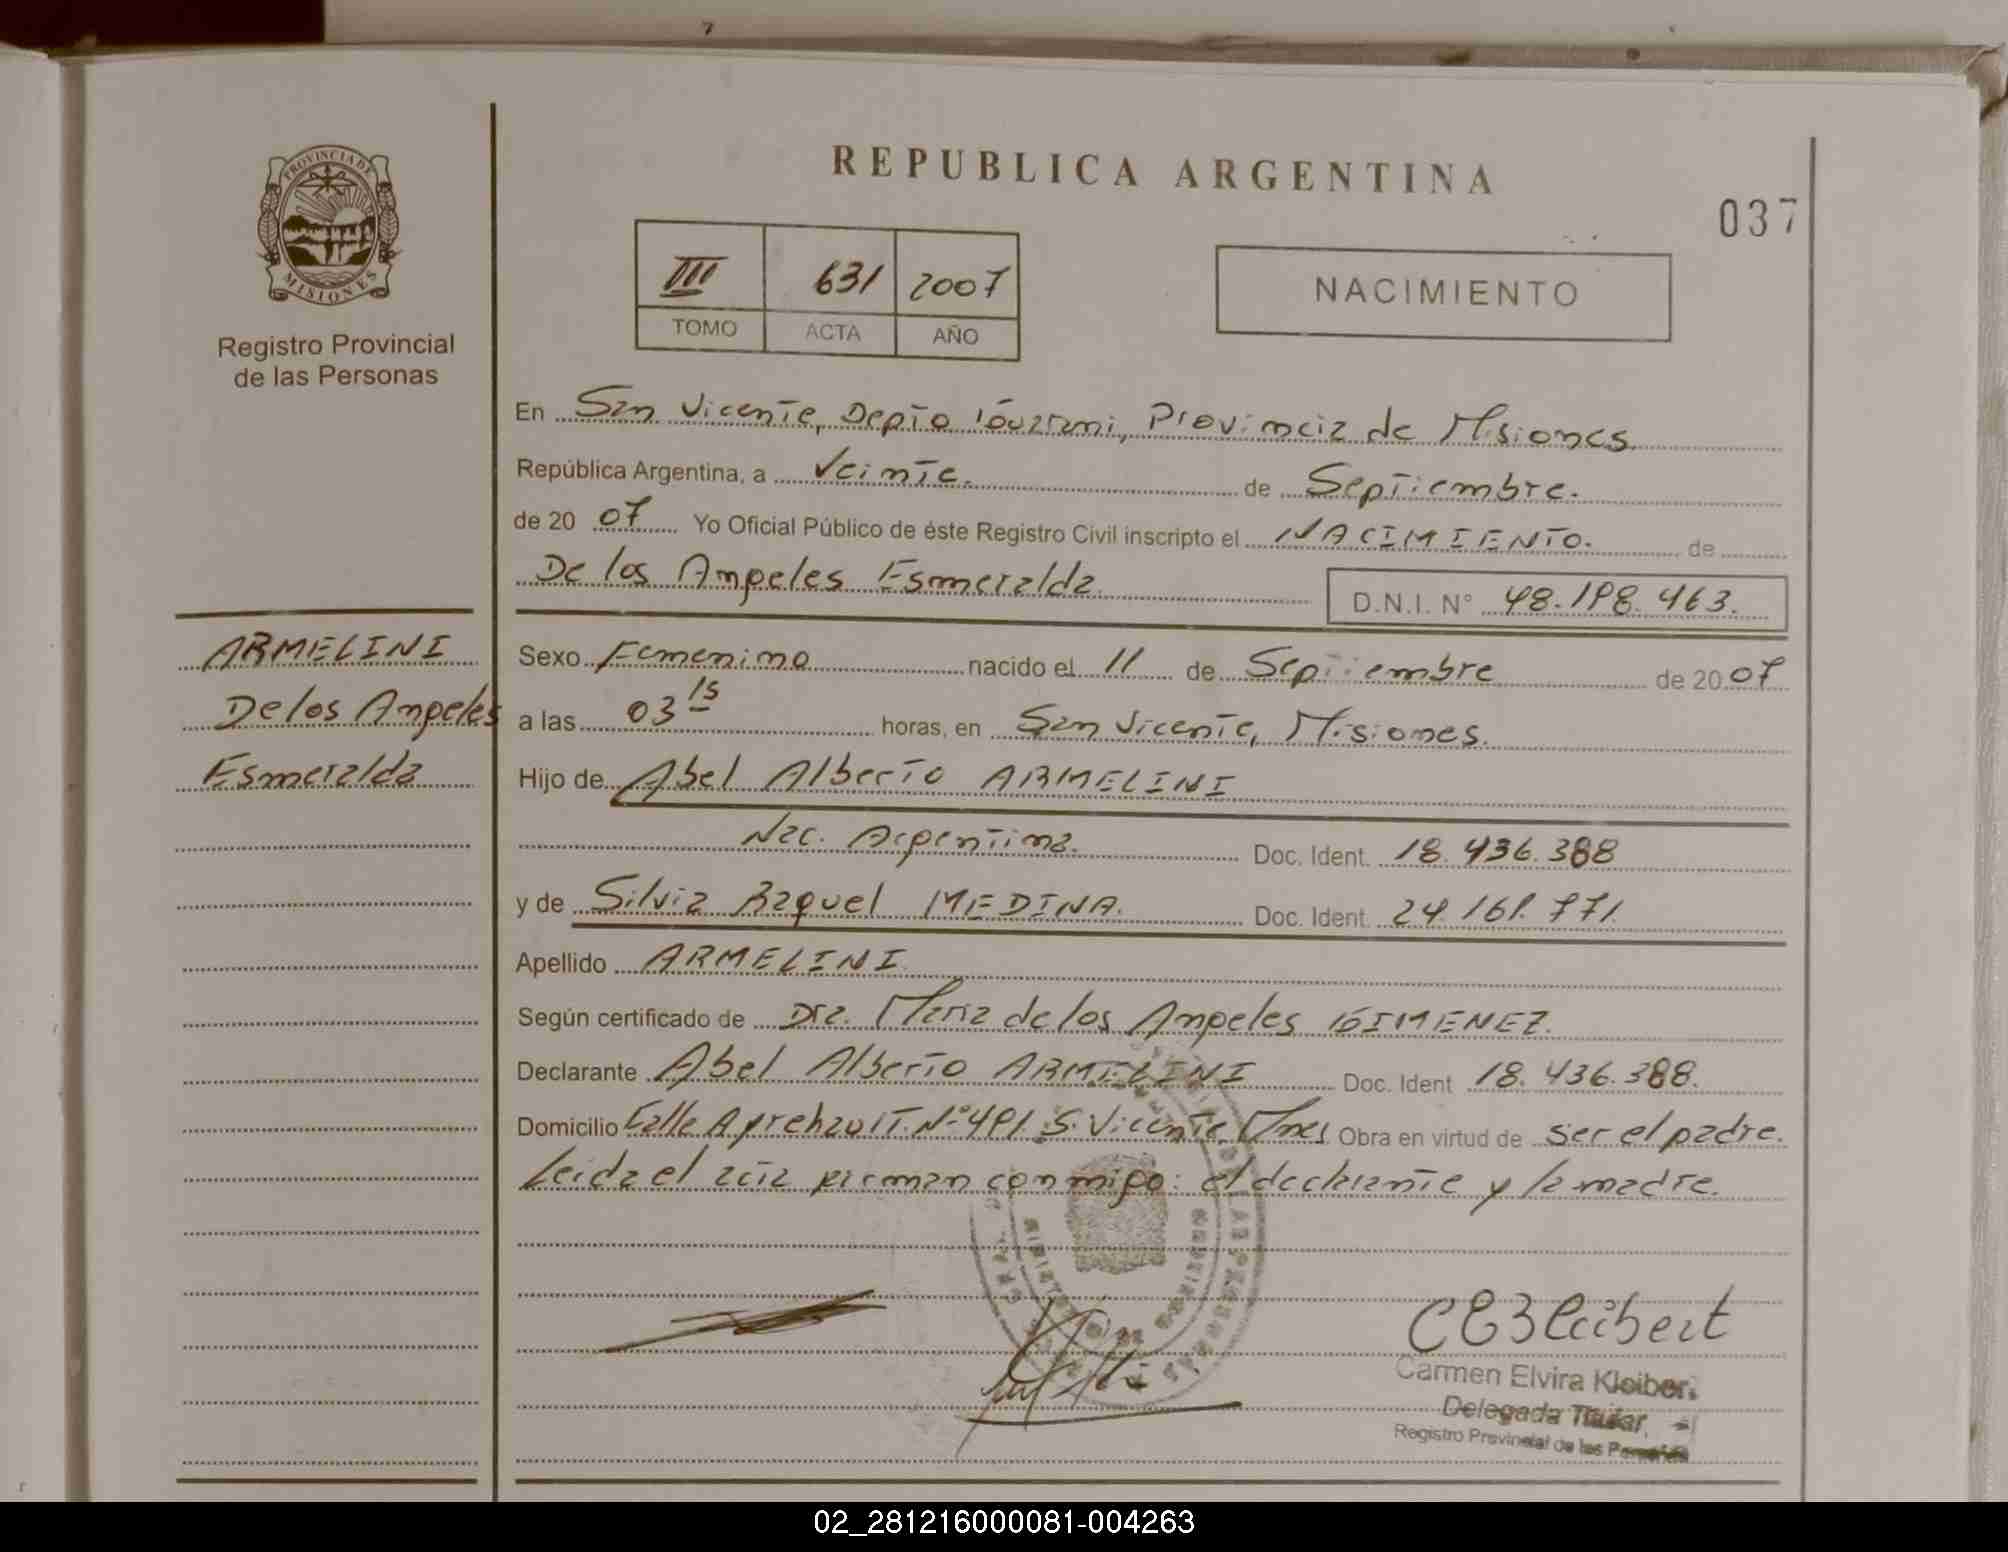 037
REPUBLICA ARGENTINA
PROVINCIA DE
MISIONES
Registro Provincial
de las Personas
III 631 2007
TOMO ACTA AÑO
NACIMIENTO
En San Vicente, Depto Guarani, Provincia de Misiones
República Argentina, a Veinte. de Septiembre.
de 20 07 Yo Oficial Público de éste Registro Civil inscripto el NACIMIENTO. de
De los Angeles Esmeralda D.N.I. N° 48.198.463.
ARMELINI
De los Angeles
Esmeralda
Sexo Femenino nacido el 11 de Septiembre de 20 07
a las 03 15 horas, en San Vicente, Misiones.
Hijo de Abel Alberto ARMELINI
Nac. Argentina. Doc. Ident. 18.436.388
y de Silvia Raquel MEDINA. Doc. Ident. 24.161.771.
Apellido ARMELINI
Según certificado de Dra. Maria de los Angeles GIMENEZ.
Declarante Abel Alberto ARMELINI Doc. Ident 18.436.388.
Domicilio Calle N° 491. S. Vicente, Mnes Obra en virtud de ser el padre.
Leida el acta firman conmigo: el declarante y la madre.
Carmen Elvira Kleiber
Delegada Titular
Registro Provincial de las Personas
02_281216000081-004263